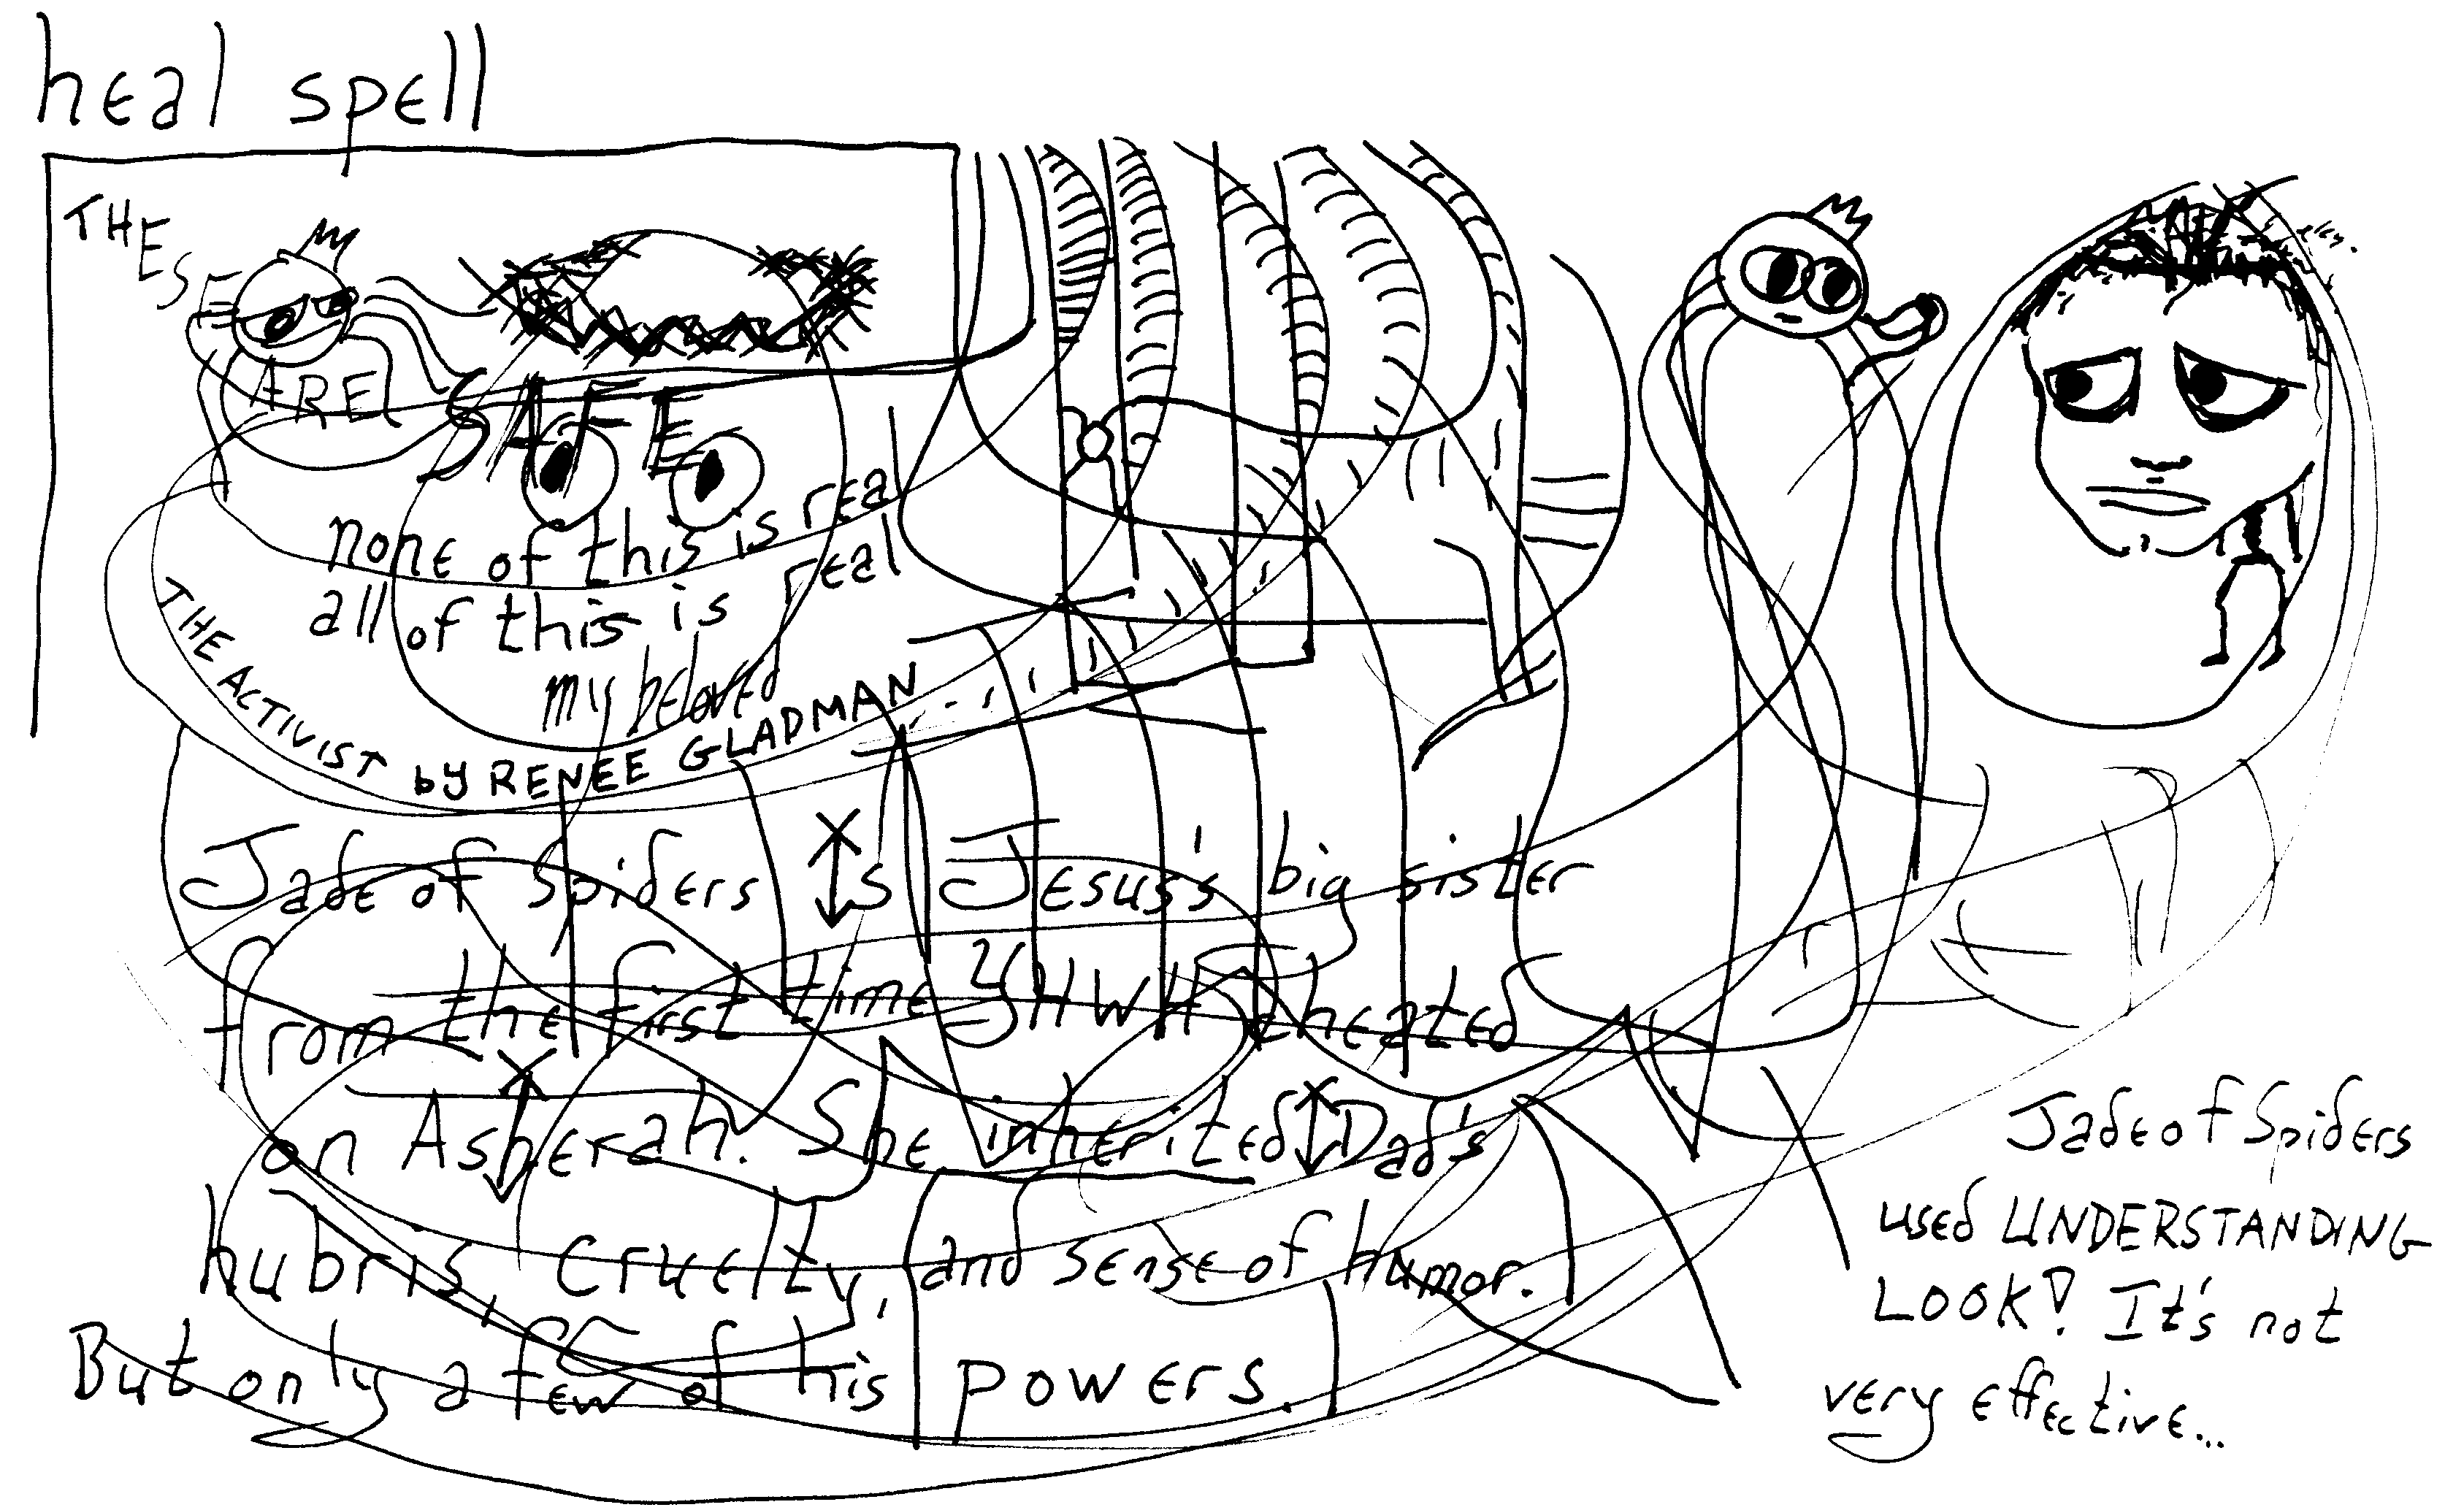 heal spell
THESE
ARE
SAFE
none of this is real
all of this is real
my beloved
THE ACTIVIST by RENEE GLADMAN
Jade of Spiders is Jesus's big sister
from the first time YHWH cheated
on Asherah. She inherited Dad's
hubris, cruelty, and sense of humor.
But only a few of his powers.
Jade of Spiders
used UNDERSTANDING
LOOK! It's not
very effective...